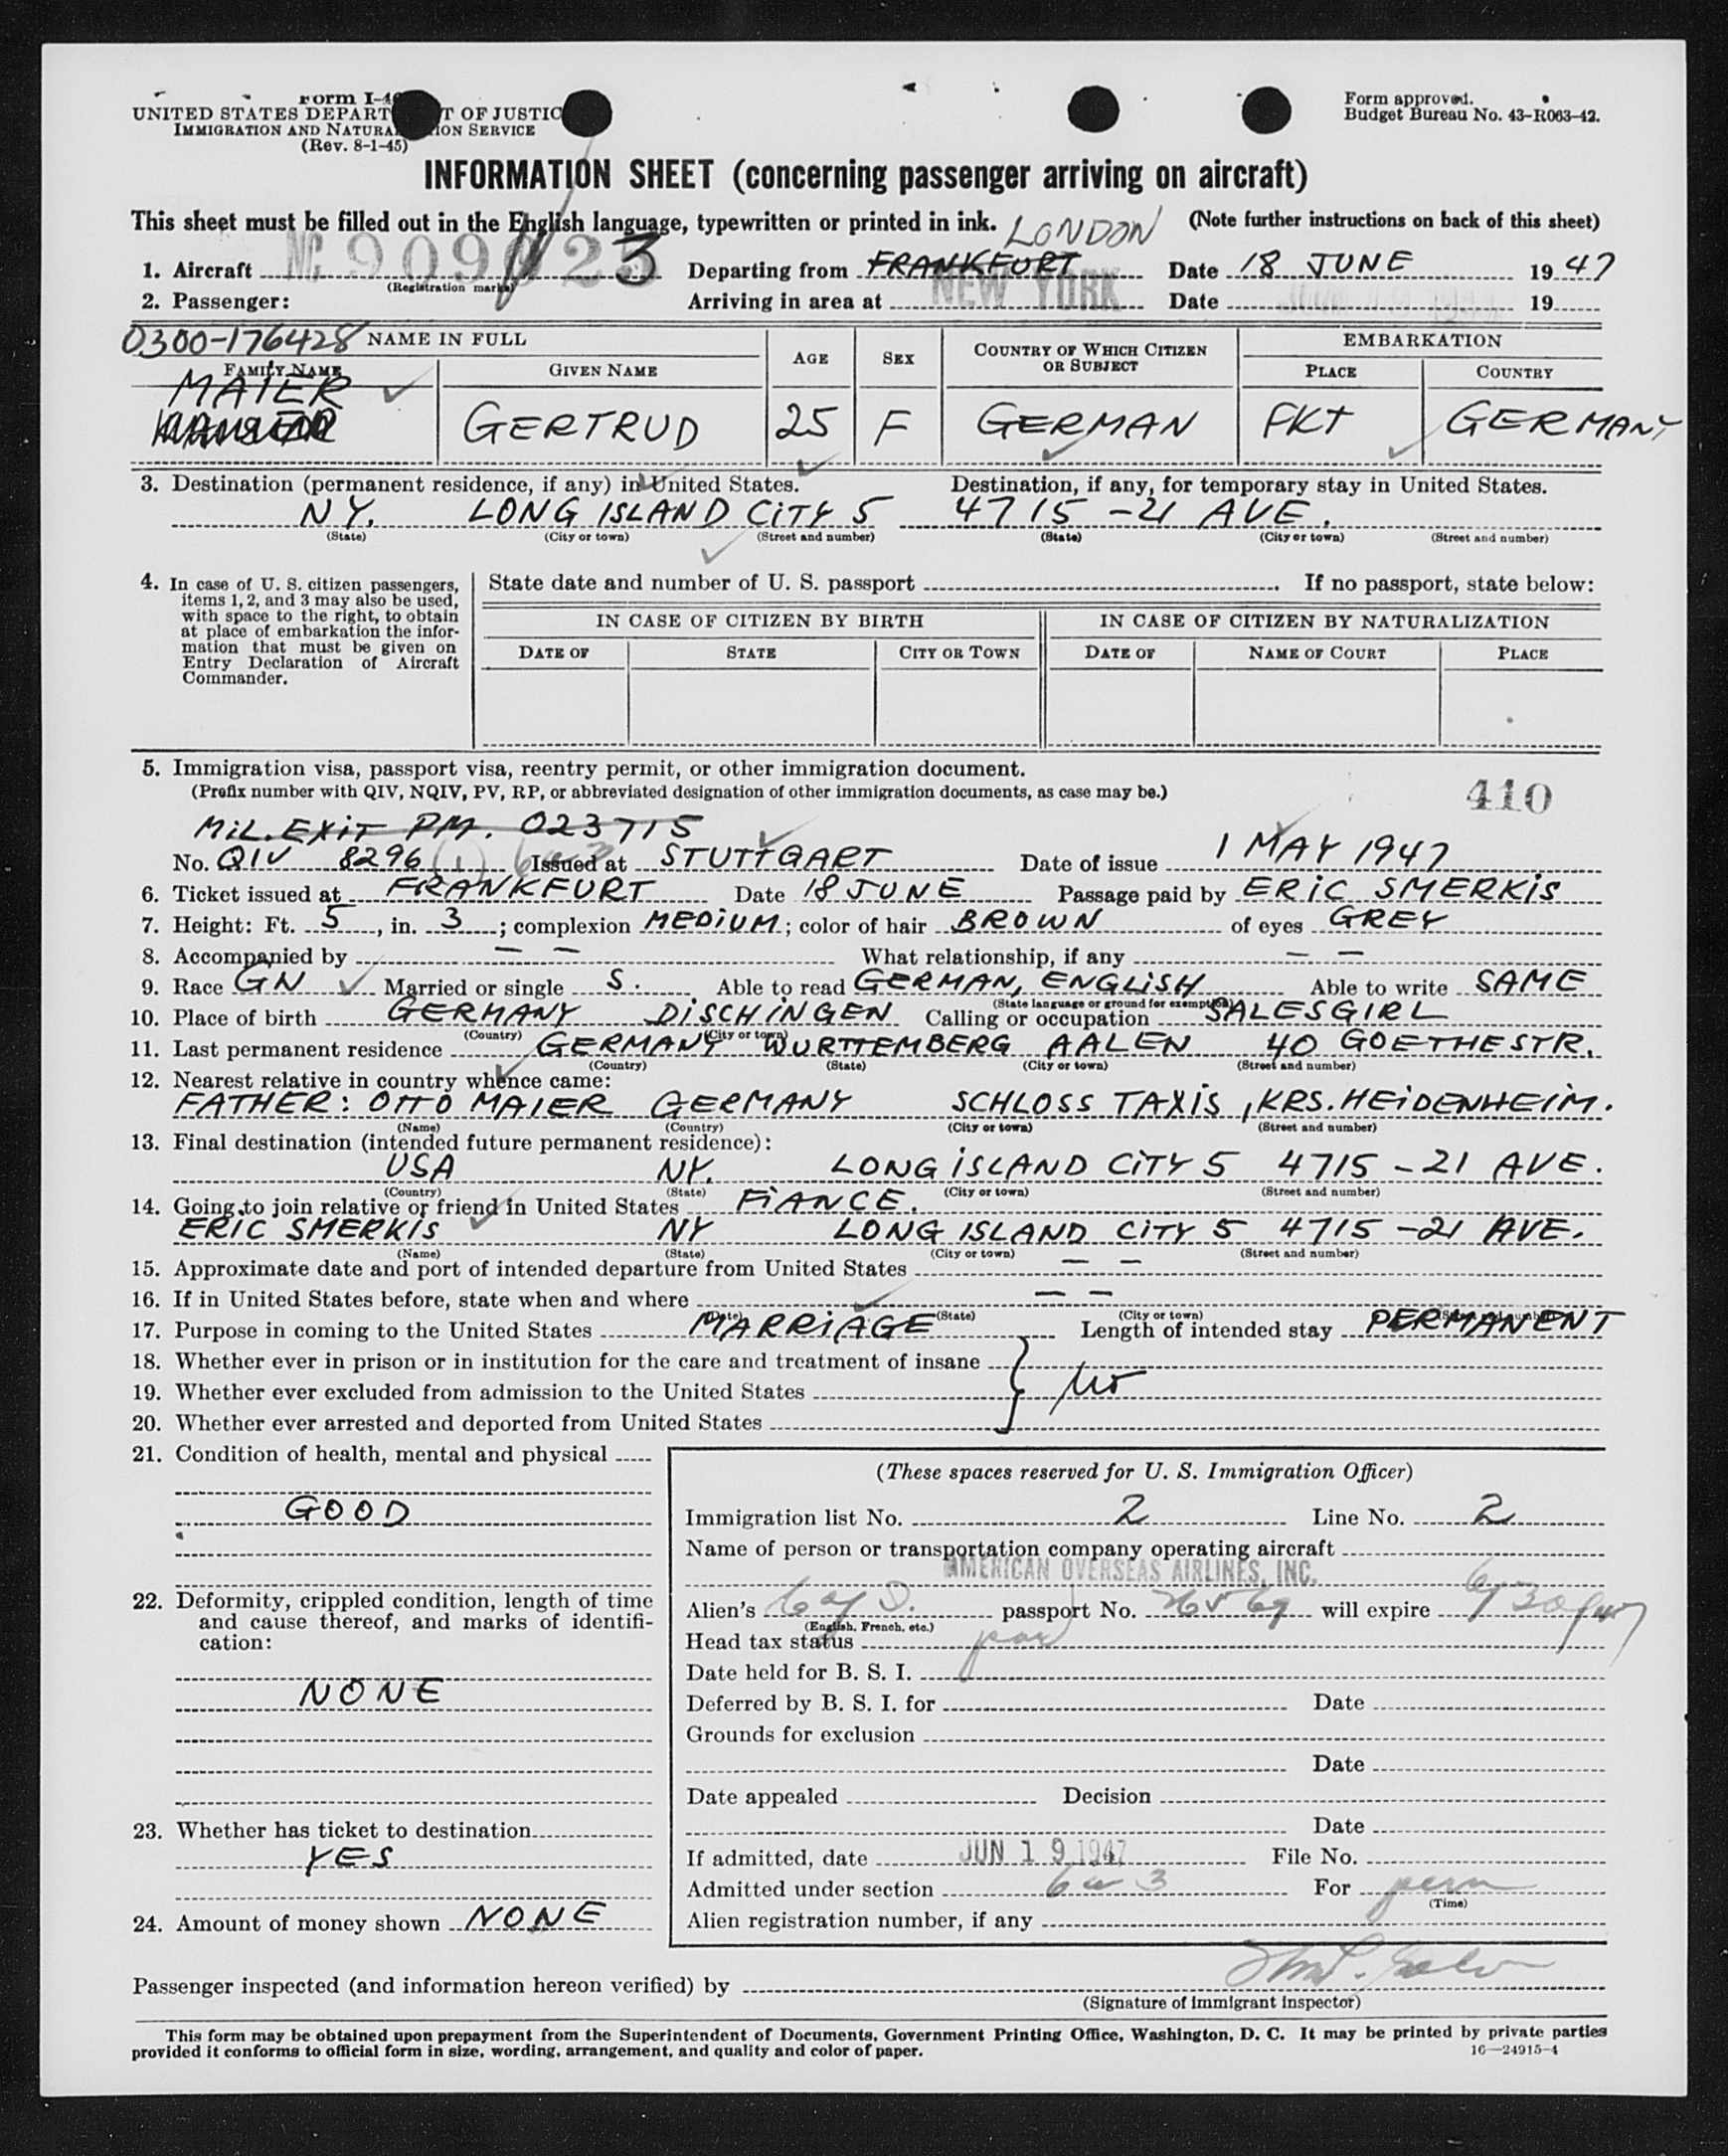 Form I-46
UNITED STATES DEPARTMENT OF JUSTICE
IMMIGRATION AND NATURALIZATION SERVICE
(Rev. 8-1-45)
Form approved.
Budget Bureau No. 43-R063-42.
INFORMATION SHEET (concerning passenger arriving on aircraft)
This sheet must be filled out in the English language, typewritten or printed in ink. (Note further instructions on back of this sheet)
LONDON
1. Aircraft NC 909 3 Departing from FRANKFURT Date 18 JUNE 1947
(Registration marks)
2. Passenger: Arriving in area at NEW YORK Date 19
0300-176428 NAME IN FULL AGE SEX COUNTRY OF WHICH CITIZEN OR SUBJECT EMBARKATION
FAMILY NAME GIVEN NAME PLACE COUNTRY
MAIER
GERTRUD 25 F GERMAN FKT GERMANY
3. Destination (permanent residence, if any) in United States. Destination, if any, for temporary stay in United States.
NY. LONG ISLAND CITY 5 4715-21 AVE.
(State) (City or town) (Street and number) (State) (City or town) (Street and number)
4. In case of U. S. citizen passengers, items 1, 2, and 3 may also be used, with space to the right, to obtain at place of embarkation the information that must be given on Entry Declaration of Aircraft Commander.
State date and number of U. S. passport . If no passport, state below:
IN CASE OF CITIZEN BY BIRTH IN CASE OF CITIZEN BY NATURALIZATION
DATE OF STATE CITY OR TOWN DATE OF NAME OF COURT PLACE
5. Immigration visa, passport visa, reentry permit, or other immigration document.
(Prefix number with QIV, NQIV, PV, RP, or abbreviated designation of other immigration documents, as case may be.)
410
MIL. EXIT PM. 023715
No. QIV 8296 (1) 6a3 Issued at STUTTGART Date of issue 1 MAY 1947
6. Ticket issued at FRANKFURT Date 18 JUNE Passage paid by ERIC SMERKIS
7. Height: Ft. 5, in. 3; complexion MEDIUM; color of hair BROWN of eyes GREY
8. Accompanied by — — What relationship, if any — —
9. Race GN Married or single S. Able to read GERMAN, ENGLISH Able to write SAME
(State language or ground for exemption)
10. Place of birth GERMANY DISCHINGEN Calling or occupation SALESGIRL
(Country) (City or town)
11. Last permanent residence GERMANY WURTTEMBERG AALEN 40 GOETHESTR.
(Country) (State) (City or town) (Street and number)
12. Nearest relative in country whence came:
FATHER: OTTO MAIER GERMANY SCHLOSS TAXIS, KRS. HEIDENHEIM.
(Name) (Country) (City or town) (Street and number)
13. Final destination (intended future permanent residence):
USA NY. LONG ISLAND CITY 5 4715-21 AVE.
(Country) (State) (City or town) (Street and number)
14. Going to join relative or friend in United States FIANCE.
ERIC SMERKIS NY LONG ISLAND CITY 5 4715-21 AVE.
(Name) (State) (City or town) (Street and number)
15. Approximate date and port of intended departure from United States — —
16. If in United States before, state when and where — —
(Date) (State) (City or town) (Street and number)
17. Purpose in coming to the United States MARRIAGE Length of intended stay PERMANENT
18. Whether ever in prison or in institution for the care and treatment of insane
19. Whether ever excluded from admission to the United States No
20. Whether ever arrested and deported from United States
21. Condition of health, mental and physical
GOOD
22. Deformity, crippled condition, length of time and cause thereof, and marks of identification:
NONE
23. Whether has ticket to destination
YES
24. Amount of money shown NONE
(These spaces reserved for U. S. Immigration Officer)
Immigration list No. 2 Line No. 2
Name of person or transportation company operating aircraft
AMERICAN OVERSEAS AIRLINES, INC.
Alien's passport No. will expire
(English, French, etc.)
Head tax status
Date held for B. S. I.
Deferred by B. S. I. for Date
Grounds for exclusion
Date
Date appealed Decision
Date
If admitted, date JUN 19 1947 File No.
Admitted under section 6a3 For perm
(Time)
Alien registration number, if any
Passenger inspected (and information hereon verified) by
(Signature of immigrant inspector)
This form may be obtained upon prepayment from the Superintendent of Documents, Government Printing Office, Washington, D. C. It may be printed by private parties
provided it conforms to official form in size, wording, arrangement, and quality and color of paper. 16—24915-4